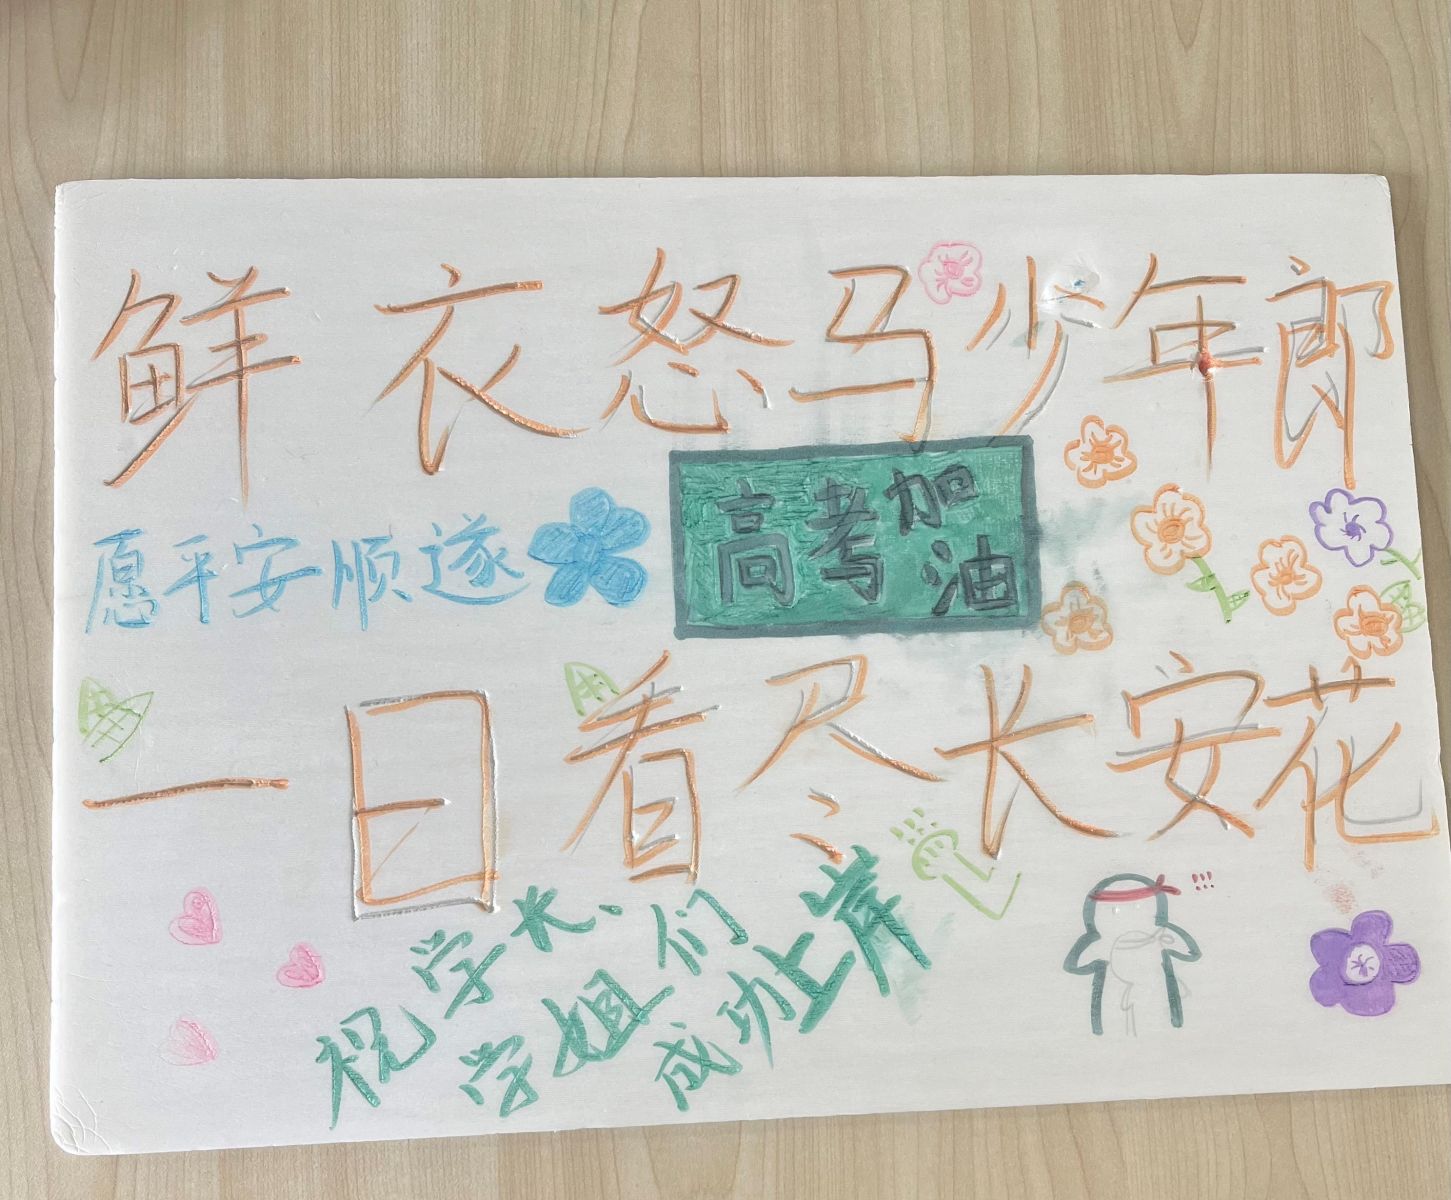 鲜衣怒马少年郎
愿平安顺遂
高考加油
一日看尽长安花
祝学长、学姐们
成功上岸
!!!